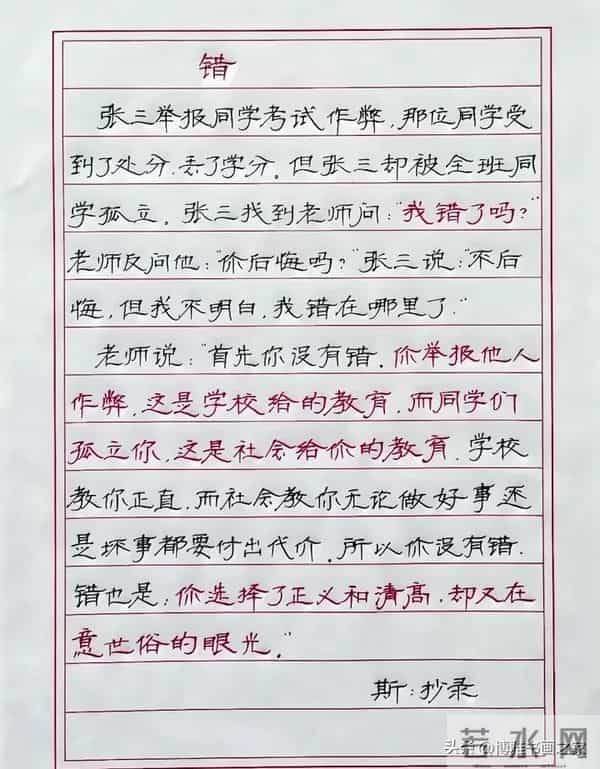 错
张三举报同学考试作弊，那位同学受
到了处分、丢了学分。但张三却被全班同
学孤立。张三找到老师问：“我错了吗？”
老师反问他：“你后悔吗？”张三说：“不后
悔，但我不明白，我错在哪里了。”
老师说：“首先你没有错。你举报他人
作弊，这是学校给的教育，而同学们
孤立你，这是社会给你的教育。学校
教你正直，而社会教你无论做好事还
是坏事都要付出代价。所以你没有错。
错也是：你选择了正义和清高，却又在
意世俗的眼光。”
斯：抄录
若水网
头条@博雅书画之家